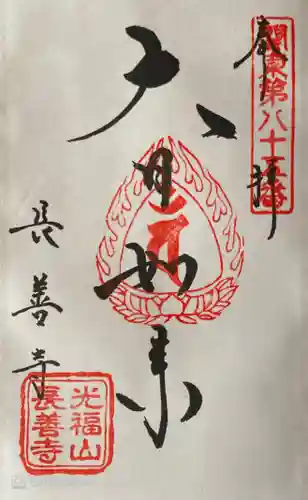 奉拝
関東第八十五番
大日如来
長善寺
光福山
長善寺